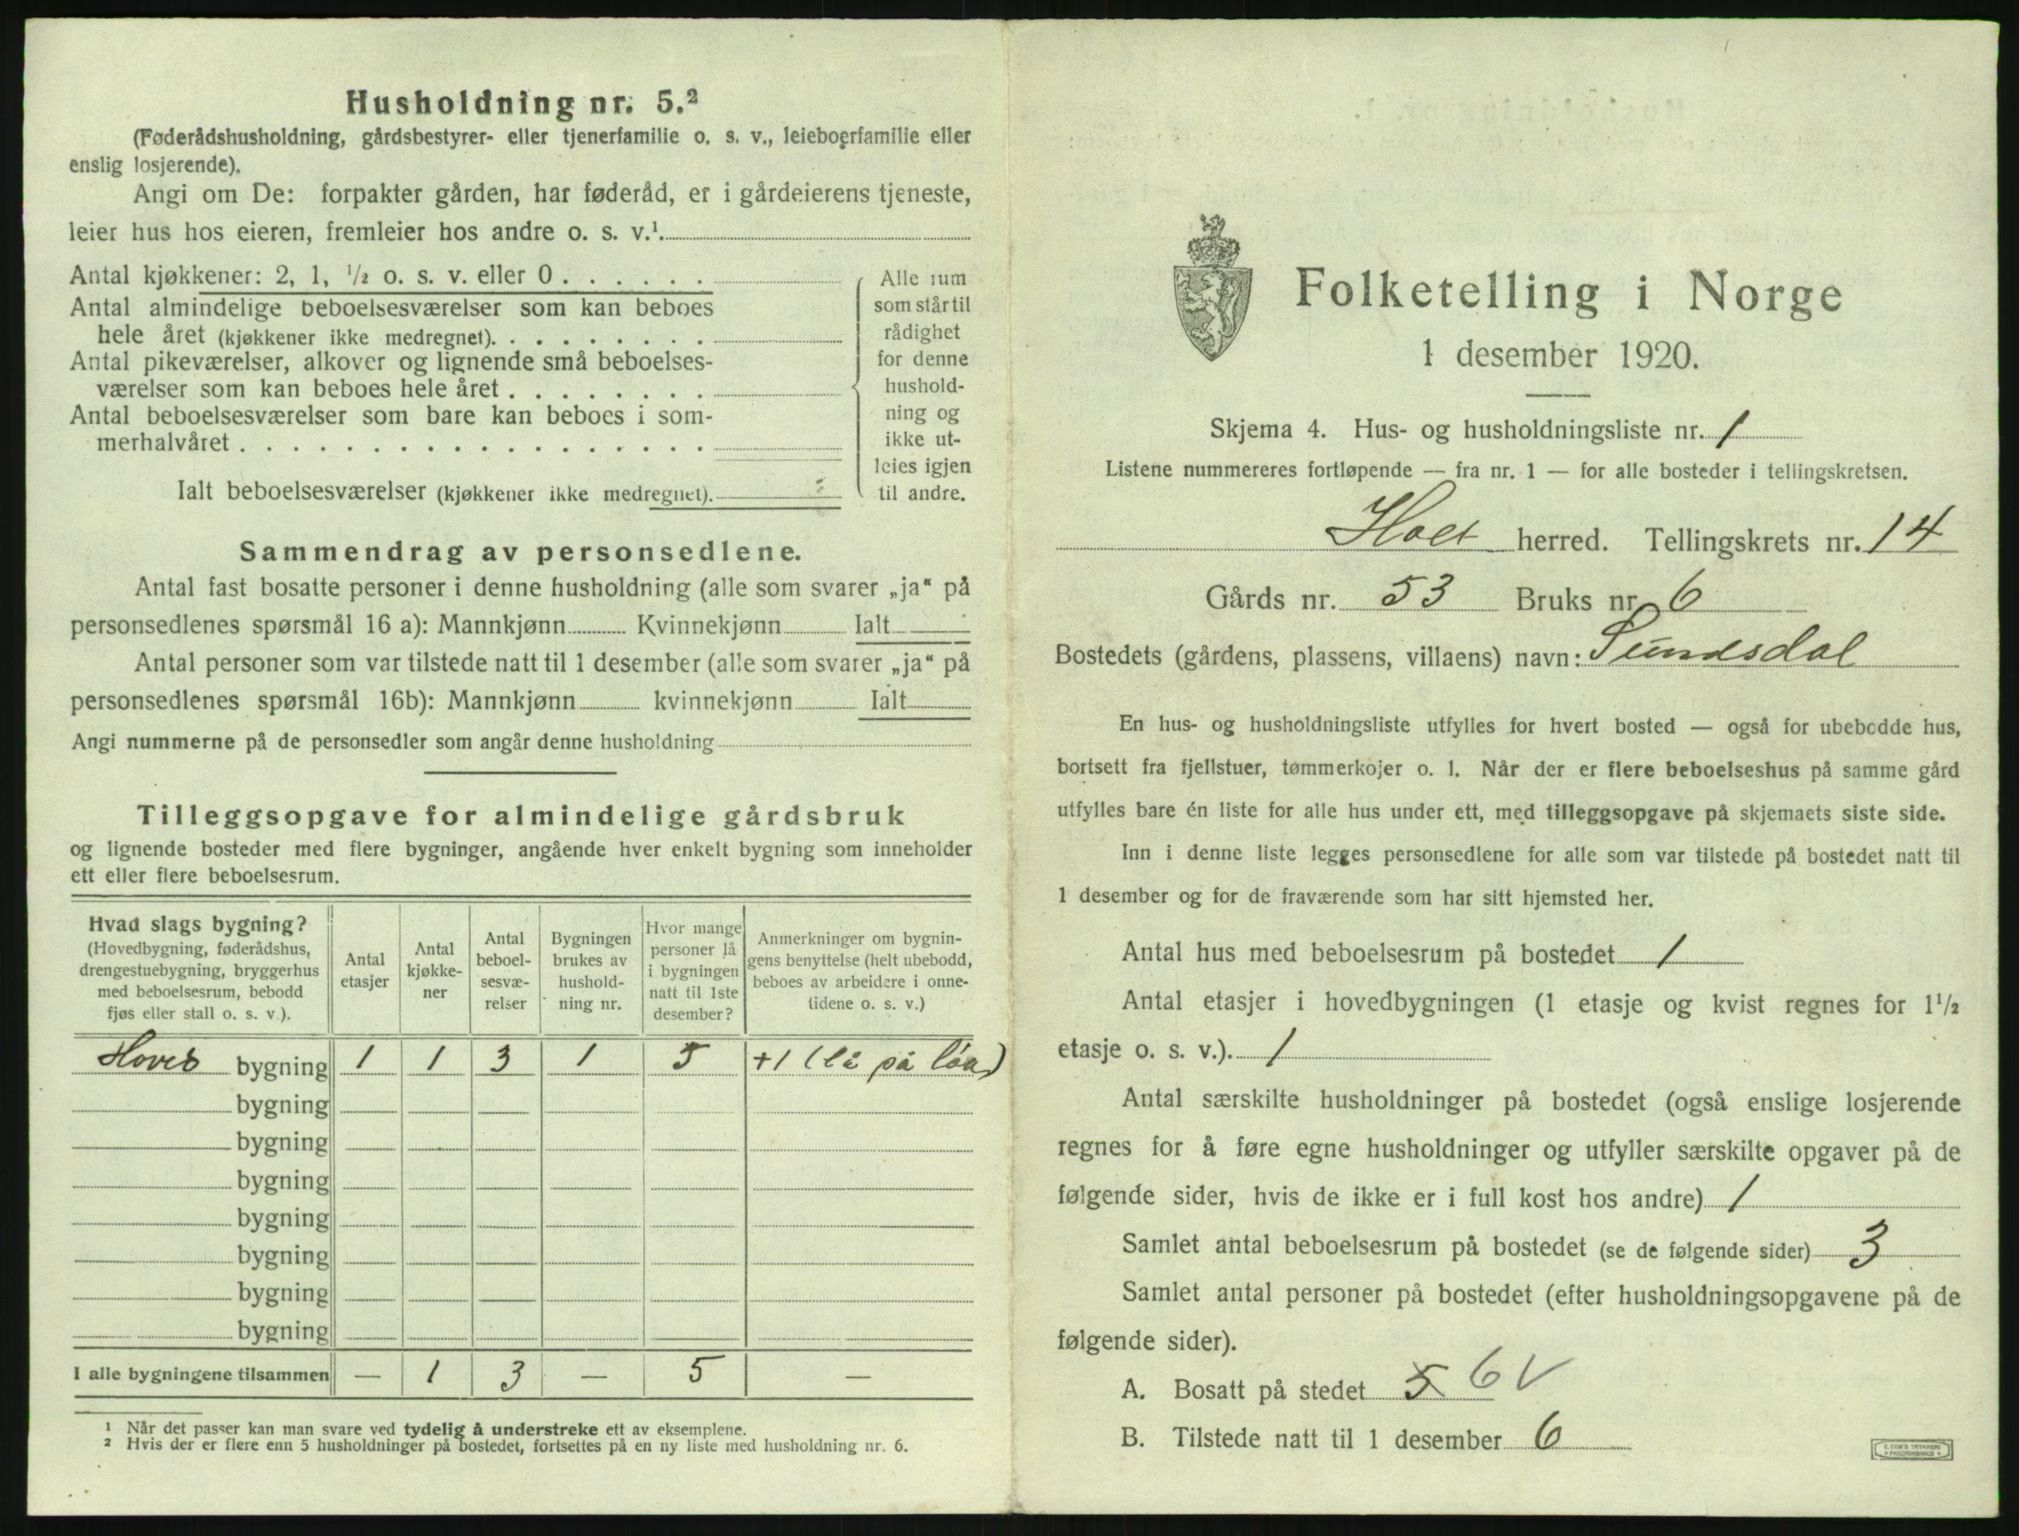 Husholdning nr. 5.²
(Føderådshusholdning, gårdsbestyrer- eller tjenerfamilie o. s. v., leieboerfamilie eller
enslig losjerende).
Angi om De: forpakter gården, har føderåd, er i gårdeierens tjeneste,
leier hus hos eieren, fremleier hos andre o. s. v.¹
Antal kjøkkener: 2, 1, ½ o. s. v. eller 0 . . . . . .
Antal almindelige beboelsesværelser som kan beboes
hele året (kjøkkener ikke medregnet). . . . . . . . .
Antal pikeværelser, alkover og lignende små beboelses-
værelser som kan beboes hele året . . . . . . . .
Antal beboelsesværelser som bare kan beboes i som-
merhalvåret . . . . . . . . . . . . . . . .
Ialt beboelsesværelser (kjøkkener ikke medregnet).
Alle rum
som står til
rådighet
for denne
hushold-
ning og
ikke ut-
leies igjen
til andre.
Sammendrag av personsedlene.
Antal fast bosatte personer i denne husholdning (alle som svarer „ja“ på
personsedlenes spørsmål 16 a): Mannkjønn Kvinnekjønn Ialt
Antal personer som var tilstede natt til 1 desember (alle som svarer „ja“ på
personsedlenes spørsmål 16b): Mannkjønn kvinnekjønn Ialt
Angi nummerne på de personsedler som angår denne husholdning
Tilleggsopgave for almindelige gårdsbruk
og lignende bosteder med flere bygninger, angående hver enkelt bygning som inneholder
ett eller flere beboelsesrum.
Hvad slags bygning?
(Hovedbygning, føderådshus,
drengestuebygning, bryggerhus
med beboelsesrum, bebodd
fjøs eller stall o. s. v.).
Antal
etasjer
Antal
kjøkke-
ner
Antal
beboel-
sesvæ-
relser
Bygningen
brukes av
hushold-
ning nr.
Hvor mange
personer lå
i bygningen
natt til 1ste
desember?
Anmerkninger om bygnin-
gens benyttelse (helt ubebodd,
beboes av arbeidere i onne-
tidene o. s. v.)
Hoved bygning 1 1 3 1 5 +1 (lå på låa)
bygning
bygning
bygning
bygning
bygning
bygning
bygning
I alle bygningene tilsammen — 1 3 — 5 —
¹ Når det passer kan man svare ved tydelig å understreke ett av eksemplene.
² Hvis der er flere enn 5 husholdninger på bostedet, fortsettes på en ny liste med husholdning nr. 6.
Folketelling i Norge
1 desember 1920.
Skjema 4. Hus- og husholdningsliste nr. 1
Listene nummereres fortløpende — fra nr. 1 — for alle bosteder i tellingskretsen.
Holt herred. Tellingskrets nr. 14
Gårds nr. 53 Bruks nr 6
Bostedets (gårdens, plassens, villaens) navn: Sundsdal
En hus- og husholdningsliste utfylles for hvert bosted — også for ubebodde hus,
bortsett fra fjellstuer, tømmerkojer o. l. Når der er flere beboelseshus på samme gård
utfylles bare én liste for alle hus under ett, med tilleggsopgave på skjemaets siste side.
Inn i denne liste legges personsedlene for alle som var tilstede på bostedet natt til
1 desember og for de fraværende som har sitt hjemsted her.
Antal hus med beboelsesrum på bostedet 1
Antal etasjer i hovedbygningen (1 etasje og kvist regnes for 1½
etasje o. s. v.). 1
Antal særskilte husholdninger på bostedet (også enslige losjerende
regnes for å føre egne husholdninger og utfyller særskilte opgaver på de
følgende sider, hvis de ikke er i full kost hos andre) 1
Samlet antal beboelsesrum på bostedet (se de følgende sider) 3
Samlet antal personer på bostedet (efter husholdningsopgavene på de
følgende sider).
A. Bosatt på stedet 5 6 V
B. Tilstede natt til 1 desember 6